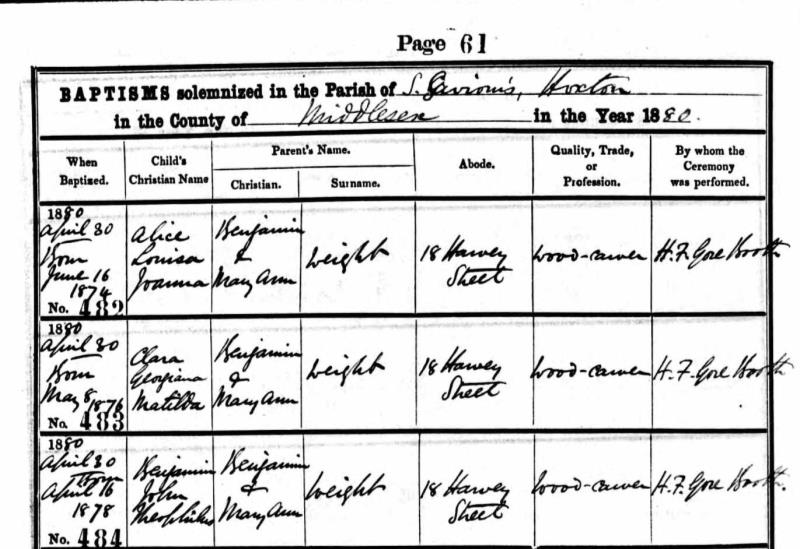 Page 61
BAPTISMS solemnized in the Parish of S. Saviour's, Hoxton
in the County of Middlesex in the Year 1880.
When Baptized.
Child's Christian Name
Parent's Name.
Christian.
Surname.
Abode.
Quality, Trade, or Profession.
By whom the Ceremony was performed.
1880
April 30
Born
June 16
1874
No. 482
Alice
Louisa
Joanna
Benjamin
&
Mary Ann
Weight
18 Harvey
Street
Wood-carver
H. F. Gore Booth
1880
April 30
Born
May 8, 1876
No. 483
Clara
Georgiana
Matilda
Benjamin
&
Mary Ann
Weight
18 Harvey
Street
Wood-carver
H. F. Gore Booth
1880
April 30
Born
April 16
1878
No. 484
Benjamin
John
Theophilus
Benjamin
&
Mary Ann
Weight
18 Harvey
Street
Wood-carver
H. F. Gore Booth.